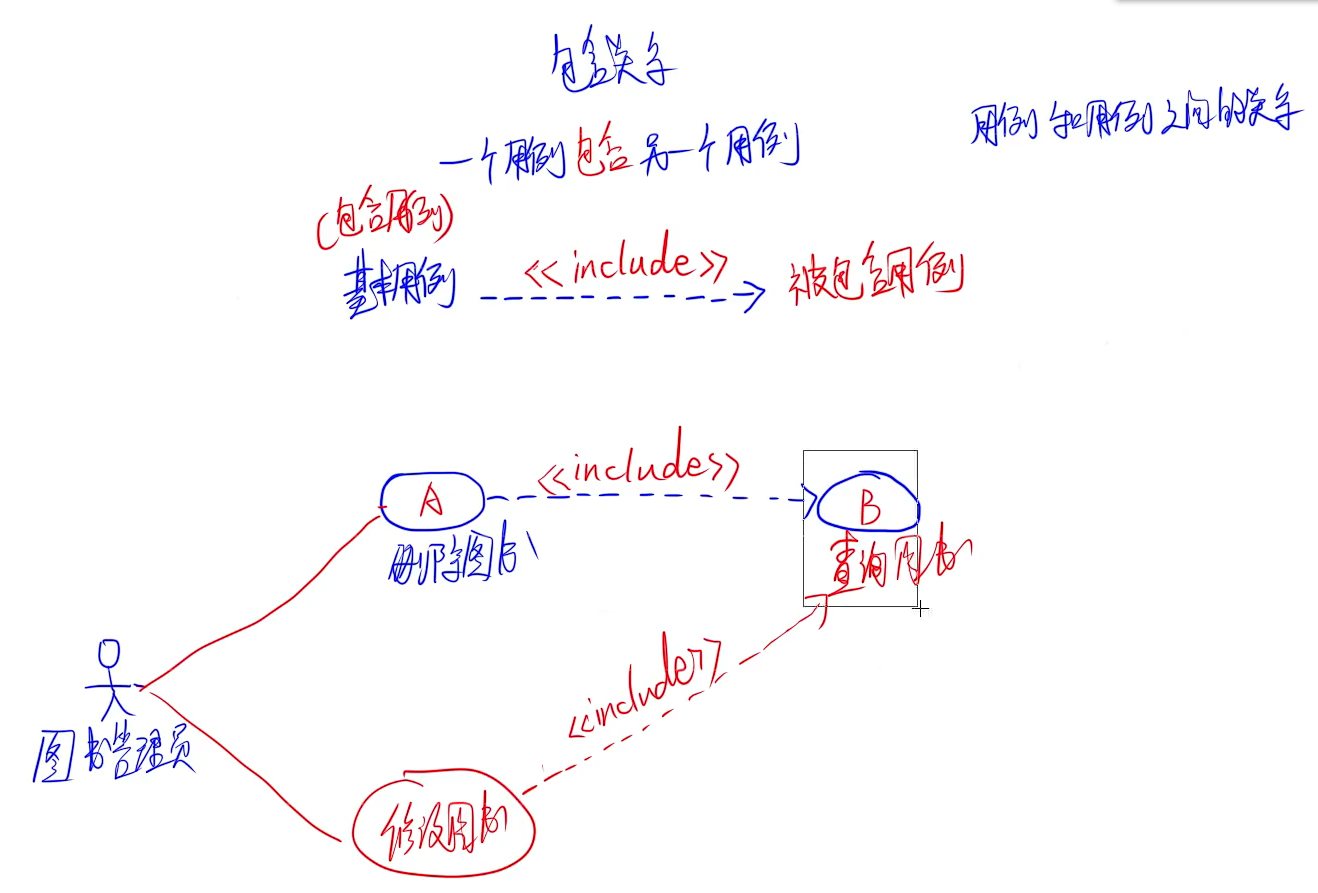 包含关系
用例和用例之间的关系
一个用例包含另一个用例
(包含用例)
基本用例 <<include>> 被包含用例
A <<include>> B
删除图书 查询图书
<<include>>
图书管理员
修改图书